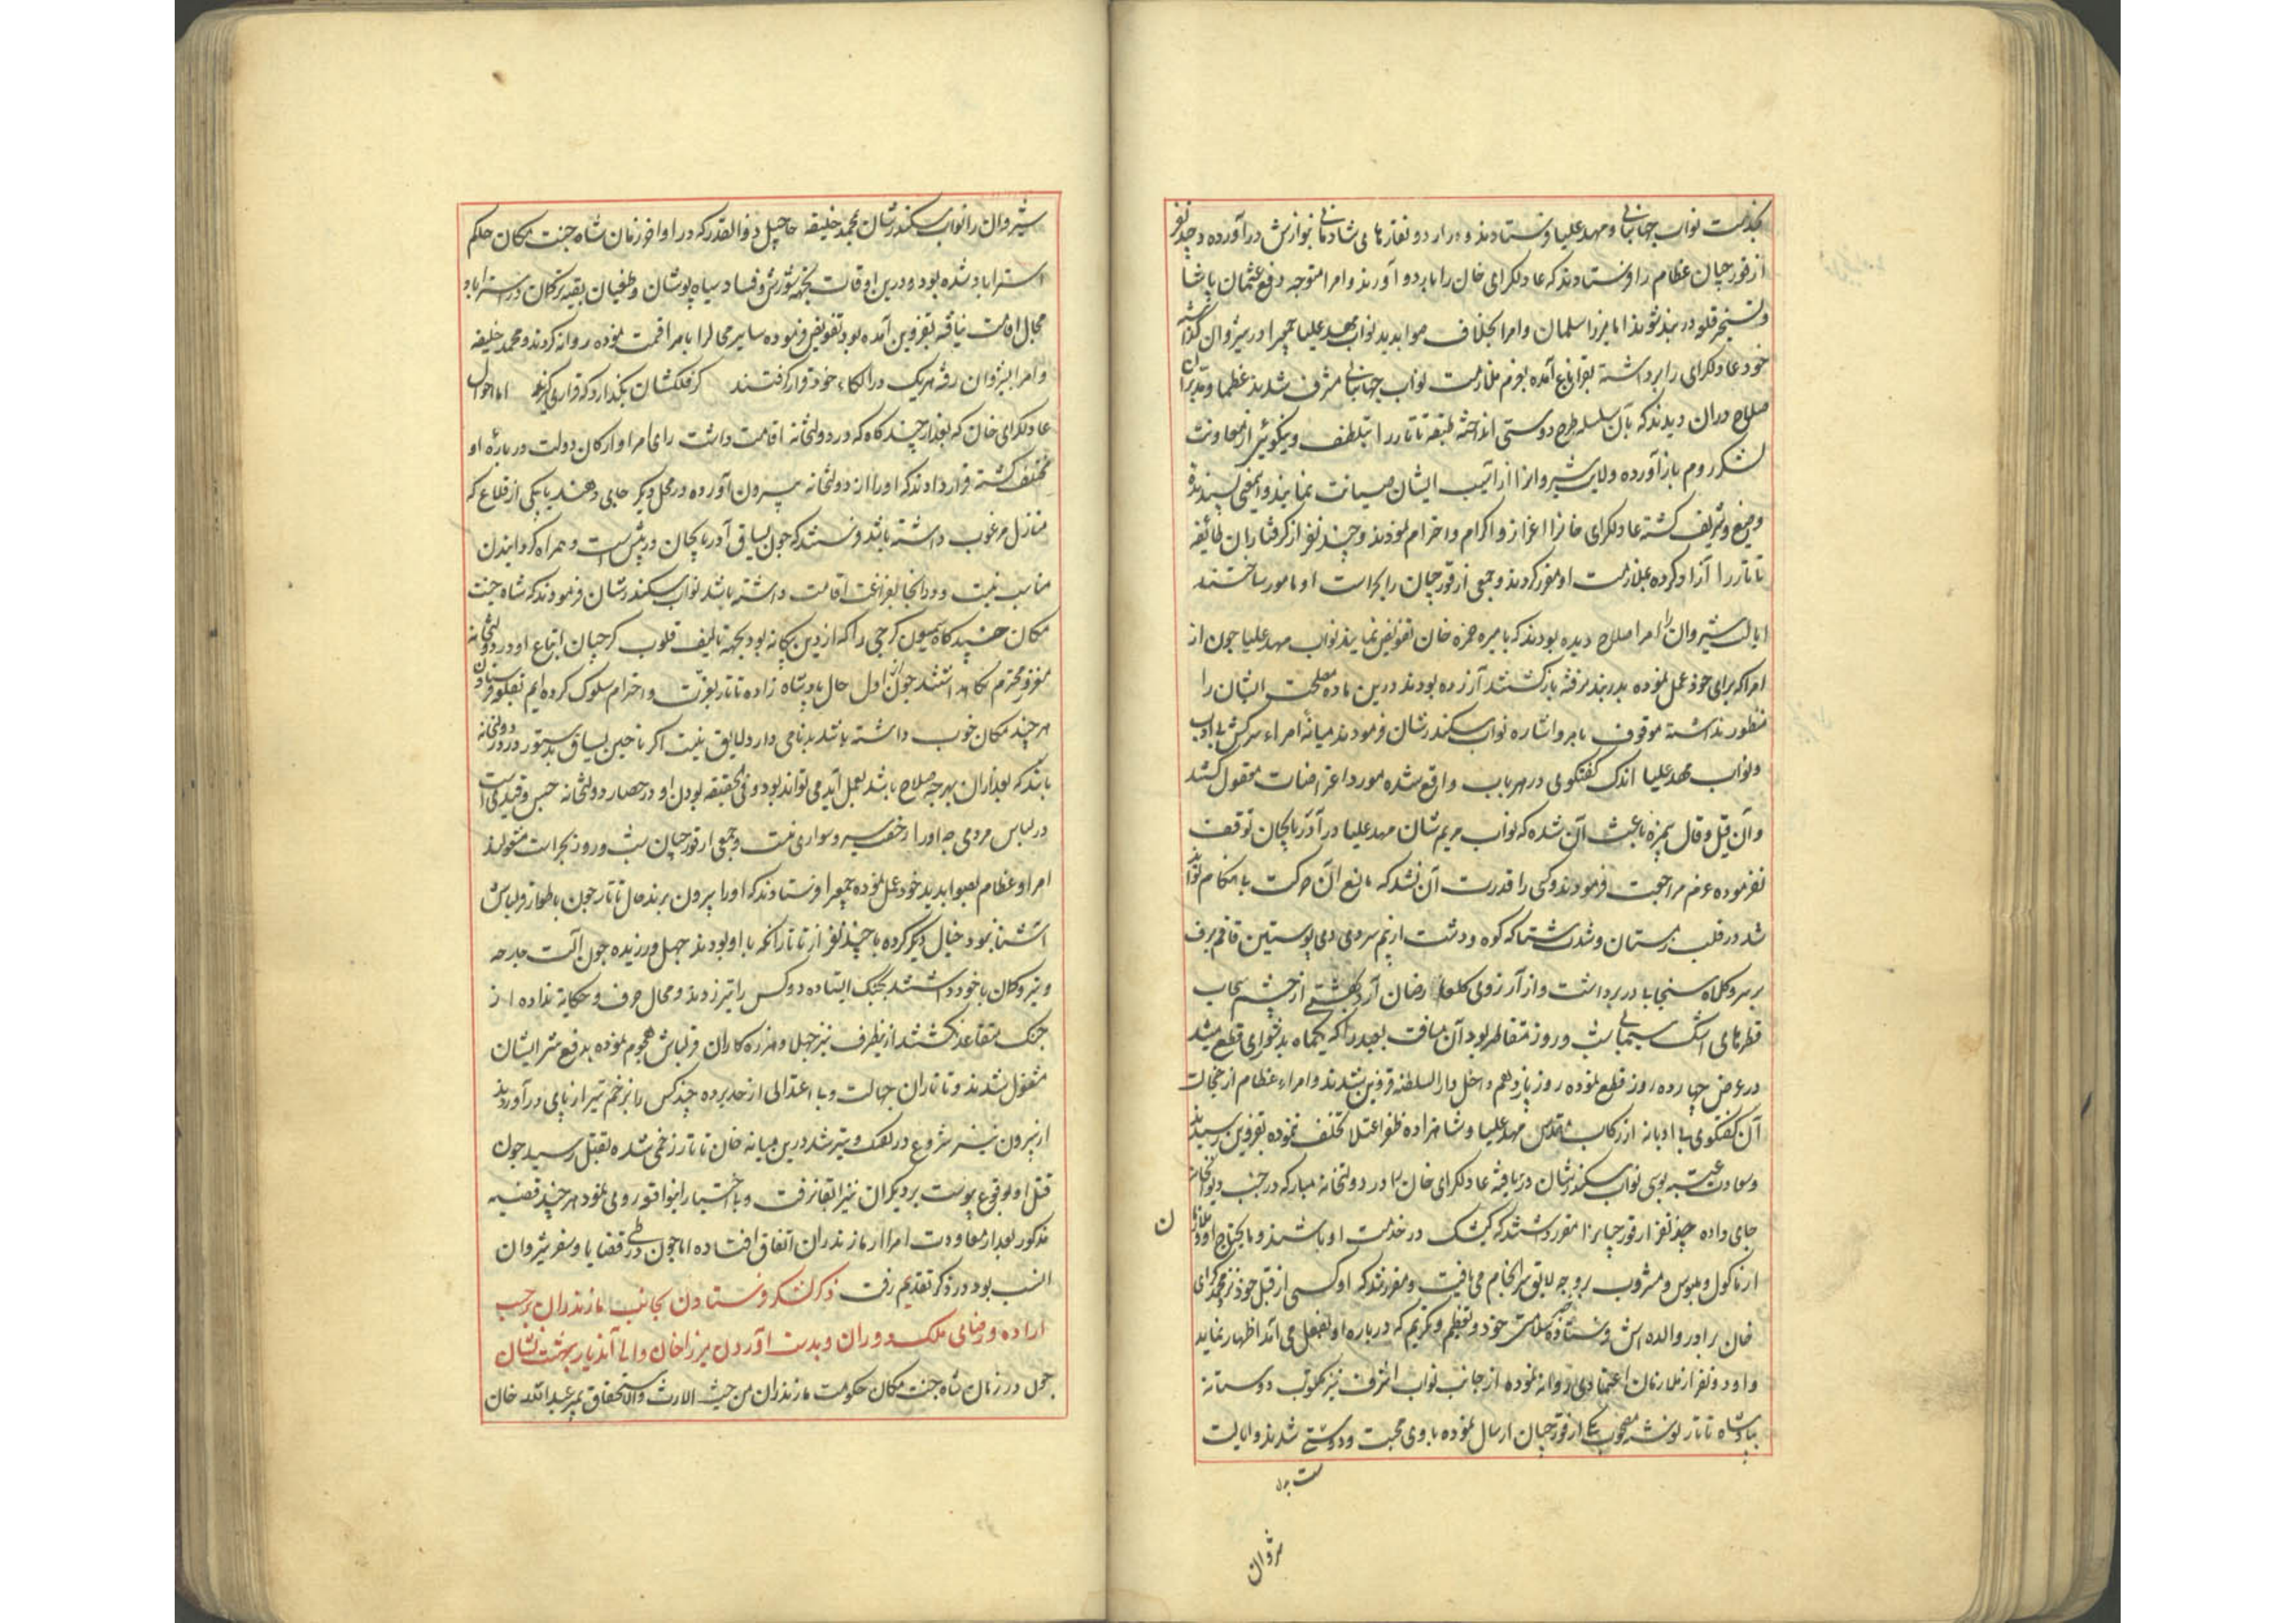 بخدمت نواب جهانبانی و مهد علیا فرستادند و در اردو نقارهای شادمانی بنوازش درآورده و چند نفر
از قورچیان عظام را فرستادند که عادلکرای خان را باردو آورند و امرا متوجه دفع عثمان پاشا
و تسخیر قلعه دربند شوند اما میرزا سلمان و امرا بخلاف صوابدید نواب مهد علیا جمعی را در شیروان گذاشته
خود عادلکرای را برداشته بقراباغ آمده بعزم ملازمت نواب جهانبانی مشرف شدند عظما و مدبران
صلاح در آن دیدند که بآن سلسله طرح دوستی انداخته طبقه تاتار را بتلطف و نیکوئی از معاونت
لشکر روم بازآورده ولایت شیروانرا از آسیب ایشان صیانت نمایند و اینمعنی پسندیده
وضیع و شریف گشته عادلکرای خانرا اعزاز و اکرام و احترام نمودند و چند نفر از گرفتاران طایفه
تاتار را آزاد کرده بملازمت او مقرر کردند و جمعی از قورچیان را بحراست او مامور ساختند
ایالت شیروان را امرا صلاح دیده بودند که بامیره حمزه خان تفویض نمایند نواب مهد علیا چون از
امرا که برای خود عمل نموده بدربند نرفته بازگشتند آزرده بودند درین ماده مصلحت ایشان را
منظور نداشته موقوف بامر و اشاره نواب سکندرشان فرمودند میانه امراء سرکش بی ادب
و نواب مهد علیا اندک گفتگوی در هر باب واقع شده مورد اعتراضات معقول گشتند
و آن قیل و قال بیمزه باعث آن شده که نواب مریم شان مهد علیا در آذربایجان توقف
نفرموده عزم مراجعت فرمودند و کسی را قدرت آن نشد که مانع آن حرکت بی هنکام تواند
شد در قلب زمستان و شدت شتا که کوه و دشت از بیم سرمای دی پوستین قاقم برف
بر سر و کلاه سنجابی در برداشت و از آرزوی گلعذار رخسان اردیبهشتی از چشم سحاب
قطرهای اشک سیمابی شب و روز متقاطر بود آن مسافت بعید را که یکماه بدشواری قطع میشد
در عرض چهارده روز قطع نموده روز پانزدهم داخل دارالسلطنه قزوین شدند و امراء عظام از خجالت
آن گفتگوی بی ادبانه از رکاب مقدس مهد علیا و شاهزاده ظفر اعتلا تخلف نموده بقزوین رسیدند
و سعادت عتبه بوسی نواب سکندرشان دریافته عادلکرای خان را در دولتخانه مبارکه در جنب دیوانخانه
جای داده چند نفر از قورچیانرا مقرر داشتند که کشیک در خدمت او باشند و مایحتاج او و ملازمان
ن
از ماکول و ملبوس و مشروب بروجه لایق سرانجام می یافت و مقرر شد که او کسی از قبل خود نزد محمد کرای
خان برادر و والده اش فرستاده سلامتی خود و تعظیم و تکریم که درباره او بفعل می آمد اظهار نماید
و او دو نفر از ملازمان اعتمادی روانه نموده از جانب نواب اشرف نیز مکتوب دوستانه
بپادشاه تاتار نوشته مصحوب یکی از قورچیان ارسال نموده باوی محبت و دوستی شدند و ایالت
شروان
شیروان را نواب سکندرشان بمحمد خلیفه حاجیلر ذوالقدر که در اواخر زمان شاه جنت مکان حاکم
استراباد شده بود و درین اوقات بجهة شورش و فساد سیاه پوشان و طغیان یقه ترکمان در استراباد
مجال اقامت نیافته بقزوین آمده بود تفویض فرموده سایر محالرا بامرا قسمت نموده روانه کردند و محمد خلیفه
و امرا بشیروان رفته هریک در الکاء خود قرار گرفتند گر فلکشان بگذارد که قراری گیرند اما احوال
عادلکرای خان که بعد از چند گاه که در دولتخانه اقامت داشت رای امرا و ارکان دولت درباره او
مختلف گشته قرار دادند که او را از دولتخانه بیرون آورده در محل دیگر جای دهند یا یکی از قلاع که
منازل مرغوب داشته باشد فرستند که چون یساق آذربایجان در پیش است و همراه گردانیدن
مناسب نیست و در آنجا بفراغت اقامت داشته باشد نواب سکندرشان فرمودند که شاه جنت
مکان چند گاه سمیون گرجی را که از دین بیگانه بود بجهة تالیف قلوب گرجیان اتباع او در دولتخانه
معزز و محترم نگاه داشتند چون از اول حال پادشاه زاده تاتار بعزت و احترام سلوک کرده ایم بقلعه فرستادن
هرچند مکان خوب داشته باشد بدنامی دارد لایق نیست اکر تا حین یساق بدستور در دولتخانه
باشد که بعد از آن بهرچه صلاح باشد بعمل آید می تواند بود و فی الحقیقه بودن او در حصار دولتخانه حبس و قیدی است
در لباس مردمی چه او را رخصت سیر و سواری نیست و جمعی از قورچیان شب و روز بحراست مشغولند
امراء عظام بصوابدید خود عمل نموده جمعیرا فرستادند که او را بیرون برند خان تاتار چون باطوار قزلباش
آشنا نبود خیال دیگر کرده با چند نفر از تاتار آنکه با او بودند جهل ورزیده چون آلت جارحه
و تیر و کمان با خود داشتند بجنگ ایستاده دو کس را تیر زدند و مجال حرف و حکایة نداده از
جنگ متقاعد نگشتند از ینطرف نیز جهلا و هرزه کاران قزلباش هجوم نموده بدفع شر ایشان
مشغول شدند و تاتاران جهالت و بی اعتدالی از حد برده چند کس را بزخم تیر از پای درآوردند
از بیرون نیز شروع در تفنگ و تیر شد درین میانه خان تاتار زخمی شده بقتل رسید چون
قتل او بوقوع پیوست بر دیگران نیز ابقا نرفت و بی اختیار اینواقعه روی نمود هرچند قضیه
مذکور بعد از معاودت امرا از مازندران اتفاق افتاده اما چون در طی قضایا و سفر شیروان
انسب بود در ذکر تقدیم رفت ذکر لشکر فرستادن بجانب مازندران برحسب
اراده و رضای ملکه دوران و بدست آوردن میرزا خان والی آندیار بهشت نشان
چون در زمان شاه جنت مکان حکومت مازندران من حیث الارث والاستحقاق بمیر عبدالله خان